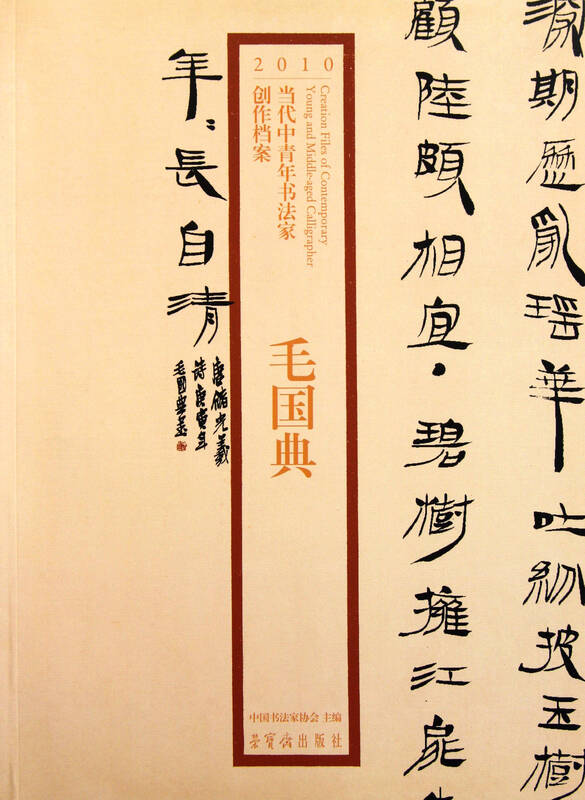 期歷亂瑶華吐紛披玉樹
顧陸頗相宜·碧樹擁江扉
2010
Creation Files of Contemporary
Young and Middle-aged Calligrapher
当代中青年书法家
创作档案
毛国典
中国书法家协会 主编
荣宝斋出版社
年〻長自清
唐儲光義
詩庚寅年
毛國典書